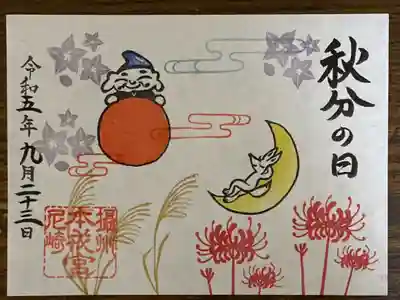 秋分の日
令和五年九月二十三日
攝州
本戎宮
尼崎